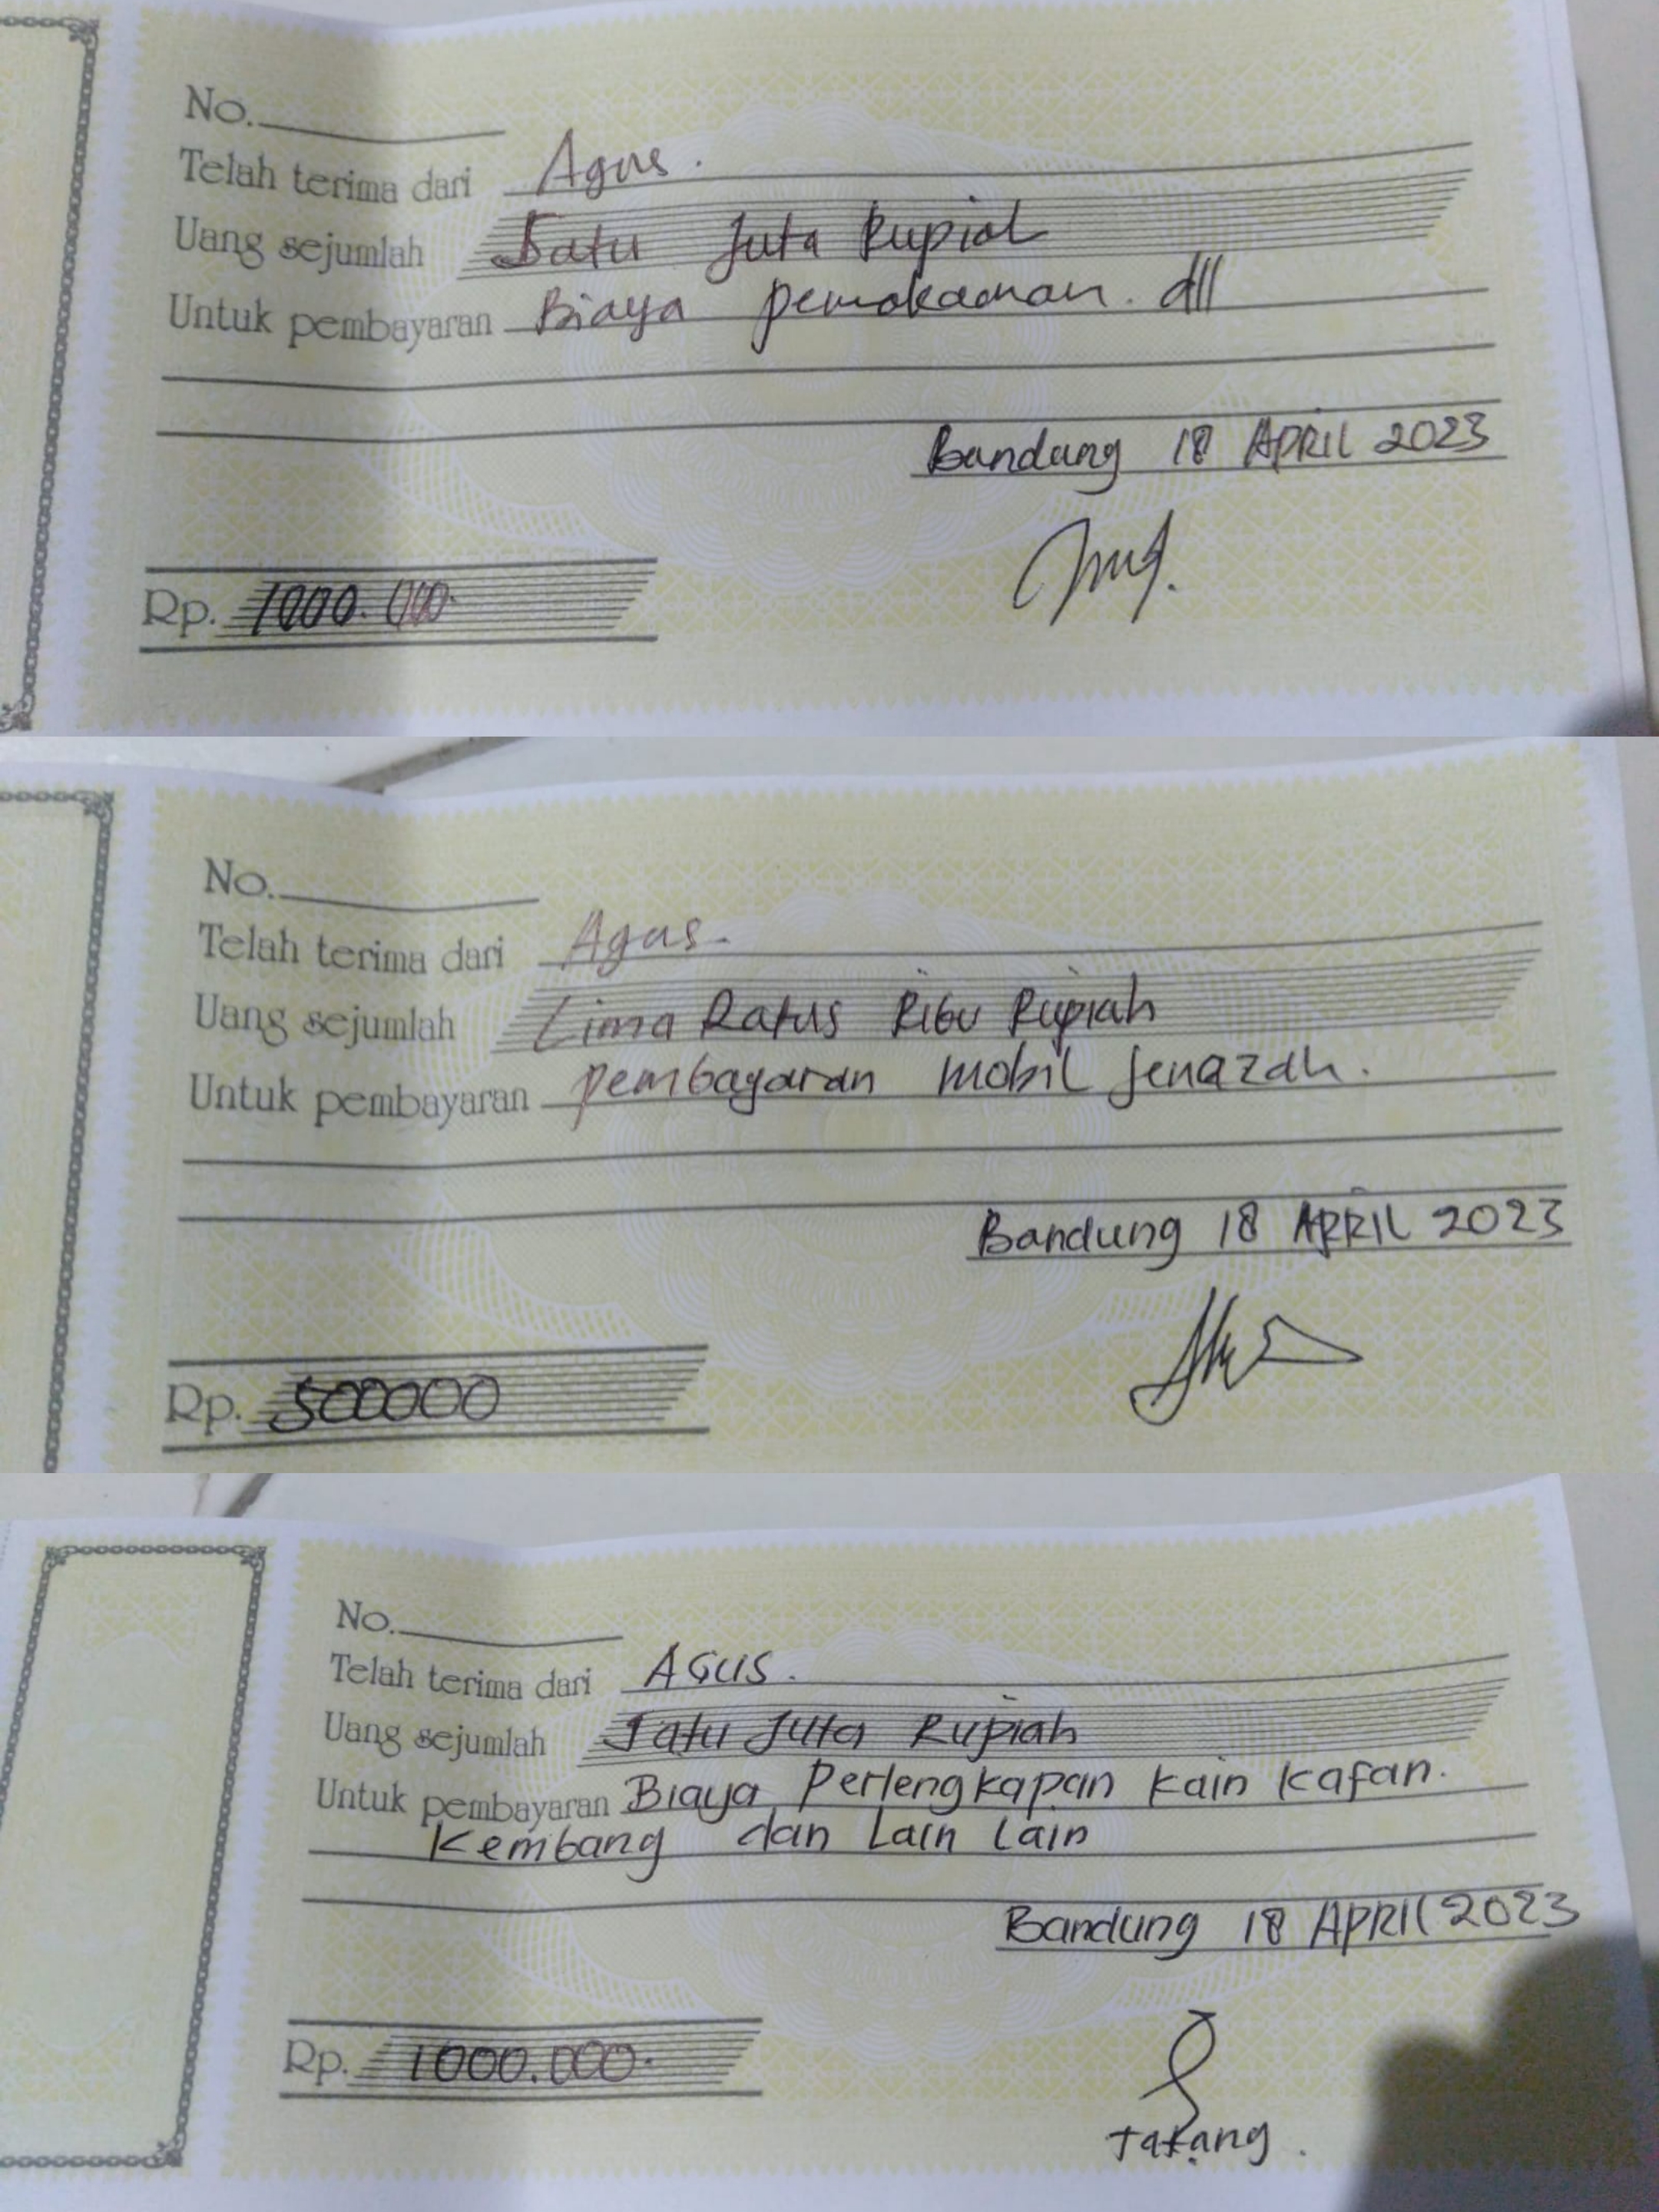 No.
Telah terima dari Agus.
Uang sejumlah Satu Juta Rupiah
Untuk pembayaran Biaya pemakaman. dll
Bandung 18 APRIL 2023
Rp. 1000.000.
No.
Telah terima dari Agus.
Uang sejumlah Lima Ratus Ribu Rupiah
Untuk pembayaran pembayaran mobil Jenazah.
Bandung 18 APRIL 2023
Rp. 500000
No.
Telah terima dari AGUS.
Uang sejumlah Satu Juta Rupiah
Untuk pembayaran Biaya Perlengkapan kain kafan.
Kembang dan Lain Lain
Bandung 18 APRIL 2023
Rp. 1000.000.